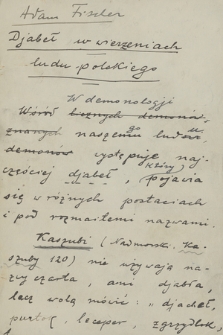 Adam Fischer
Djabeł w wierzeniach
ludu polskiego
W demonologji
Wśród licznych demonów
znanych naszego ludu
demonów występuje naj-
częściej djabeł, który pojawia
się w różnych postaciach
i pod rozmaitemi nazwami.
Kaszubi (Nadmorski, Ka-
szuby 120) nie używają na-
zwy czarta, ani djabła,
lecz wolą mówić: "djacheł,
purtek, leceper, zgrzydłek